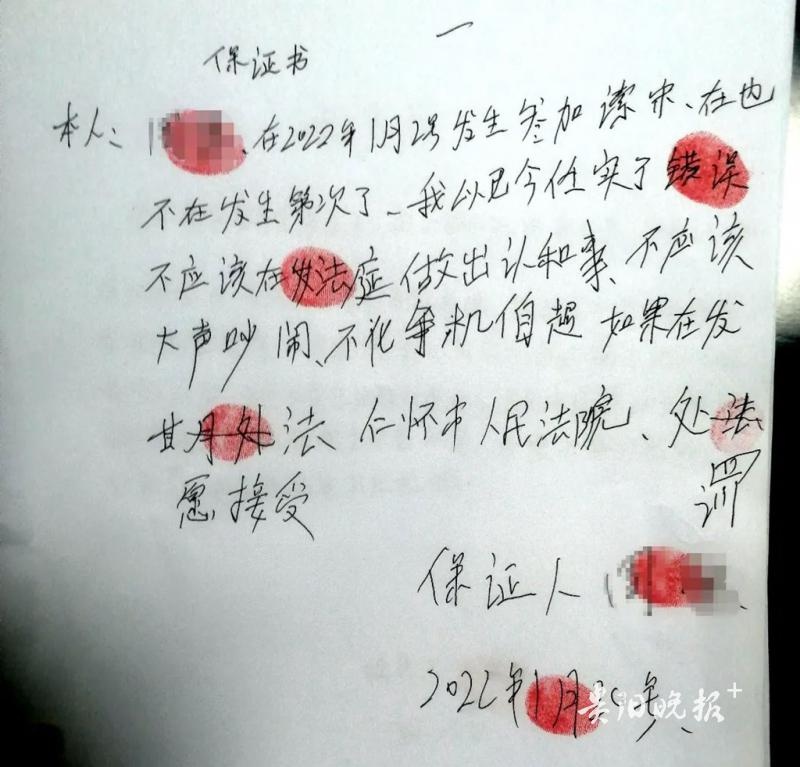 保证书
本人：在2022年1月2号发生参加谏宋、在也
不在发生第次了、我以已今任实了错误
不应该在发法庭做出认和事、不应该
大声吵闹、不化争机伯超如果在发
甘月处法仁怀市人民法院、处法
愿接受 罚
保证人
2022年1月
贵阳晚报+